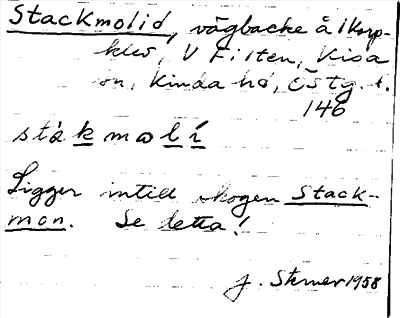 Stackmolid, vägbacke å 1 Korp-
klev, V Fiften, Kisa
sn, Kinda hd, Östg. l.
146
ståkmolí
Ligger intill skogen Stack-
mon. Se detta!
J. Sterner 1958